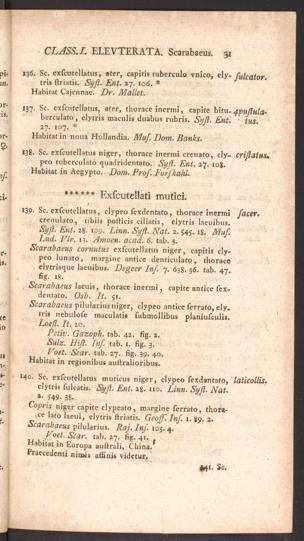 CLASS. I. ELEVTERATA. Scarabaeus. 31
136. Sc. exscutellatus, ater, capitis tuberculo vnico, ely- sulcator.
tris striatis. Syst. Ent. 27. 106. *
Habitat Cajennae. Dr. Mallet.
137. Sc. exscutellatus, ater, thorace inermi, capite bitu- 4pustula-
berculato, elytris maculis duabus rubris. Syst. Ent. tus.
27. 107. *
Habitat in noua Hollandia. Mus. Dom. Banks.
138. Sc. exscutellatus niger, thorace inermi crenato, cly- cristatus.
peo tuberculato quadridentato. Syst. Ent. 27. 108.
Habitat in Aegypto. Dom. Prof. Forskahl.
****** Exscutellati mutici.
139. Sc. exscutellatus, clypeo sexdentato, thorace inermi sacer.
crenulato, tibiis posticis ciliatis, elytris laeuibus.
Syst. Ent. 28. 109. Linn. Syst. Nat. 2. 545. 18. Mus.
Lud. Vlr. 13. Amoen. acad. 6. tab. 3.
Scarabaeus cornutus exscutellatus niger, capitis cly-
peo lunato, margine antice denticulato, thorace
elytrisque laeuibus. Degeer Ins. 7. 638. 36. tab. 47.
fig. 18.
Scarabaeus laeuis, thorace inermi, capite antice sex-
dentato. Osb. It. 51.
Scarabaeus pilularius niger, clypeo antice serrato, ely-
tris nebulose maculatis submollibus planiusculis.
Loefl. It. 20.
Petiv. Gazoph. tab. 42. fig. 2.
Sulz. Hist. Ins. tab. 1. fig. 3.
Voet. Scar. tab. 27. fig. 39. 40.
Habitat in regionibus australioribus.
140. Sc. exscutellatus muticus niger, clypeo sexdentato, laticollis.
elytris sulcatis. Syst. Ent. 28. 110. Linn. Syst. Nat.
2. 549. 38.
Copris niger capite clypeato, margine serrato, thora-
ce lato laeui, elytris striatis. Geoff. Ins. 1. 89. 2.
Scarabaeus pilularius. Raj. Ins. 105. 4.
Voet. Scar. tab. 27. fig. 41.
Habitat in Europa australi, China.
Praecedenti nimis affinis videtur.
141. Sc.